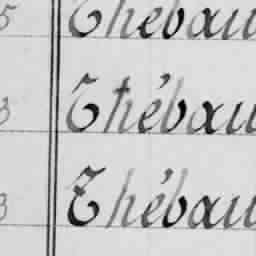 5 Thébau
3 Thébau
3 Thébau